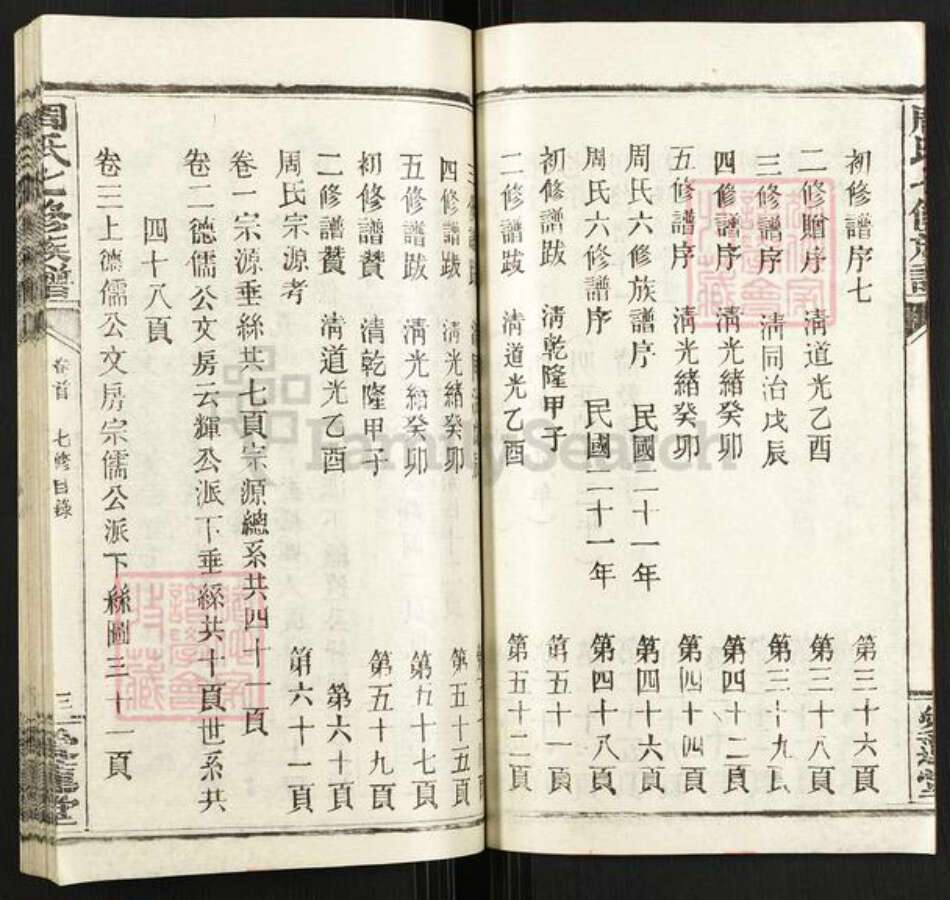 初修譜序七 第三十六頁
二修贈序 淸道光乙酉 第三十八頁
三修譜序 淸同治戊辰 第三十九頁
四修譜序 淸光緖癸卯 第四十二頁
五修譜序 淸光緖癸卯 第四十四頁
周氏六修族譜序 民國二十一年 第四十六頁
周氏六修譜序 民國二十一年 第四十八頁
初修譜跋 淸乾隆甲子 第五十一頁
二修譜跋 淸道光乙酉 第五十二頁
四修譜跋 淸光緖癸卯 第五十五頁
五修譜跋 淸光緖癸卯 第五十七頁
初修譜贊 淸乾隆甲子 第五十九頁
二修譜贊 淸道光乙酉 第六十頁
周氏宗源考 第六十一頁
卷一宗源垂絲共七頁宗源總系共四十一頁
卷二德儒公文房云輝公派下垂絲共十頁世系共
四十八頁
卷三上德儒公文房宗儒公派下絲圖三十一頁
周氏七修族譜
卷首 七修目錄
三
FamilySearch